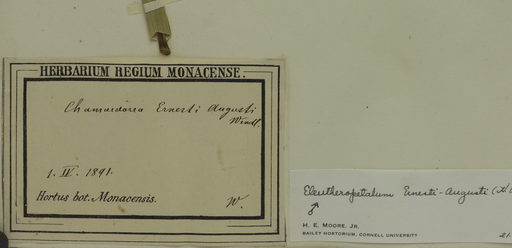 HERBARIUM REGIUM MONACENSE.
Chamaedorea Ernesti Augusti
Wendl.
1. IV. 1891.
Hortus bot. Monacensis.
W.
Eleutheropetalum Ernesti-Augusti
♂
H. E. MOORE, JR.
BAILEY HORTORIUM, CORNELL UNIVERSITY
21.